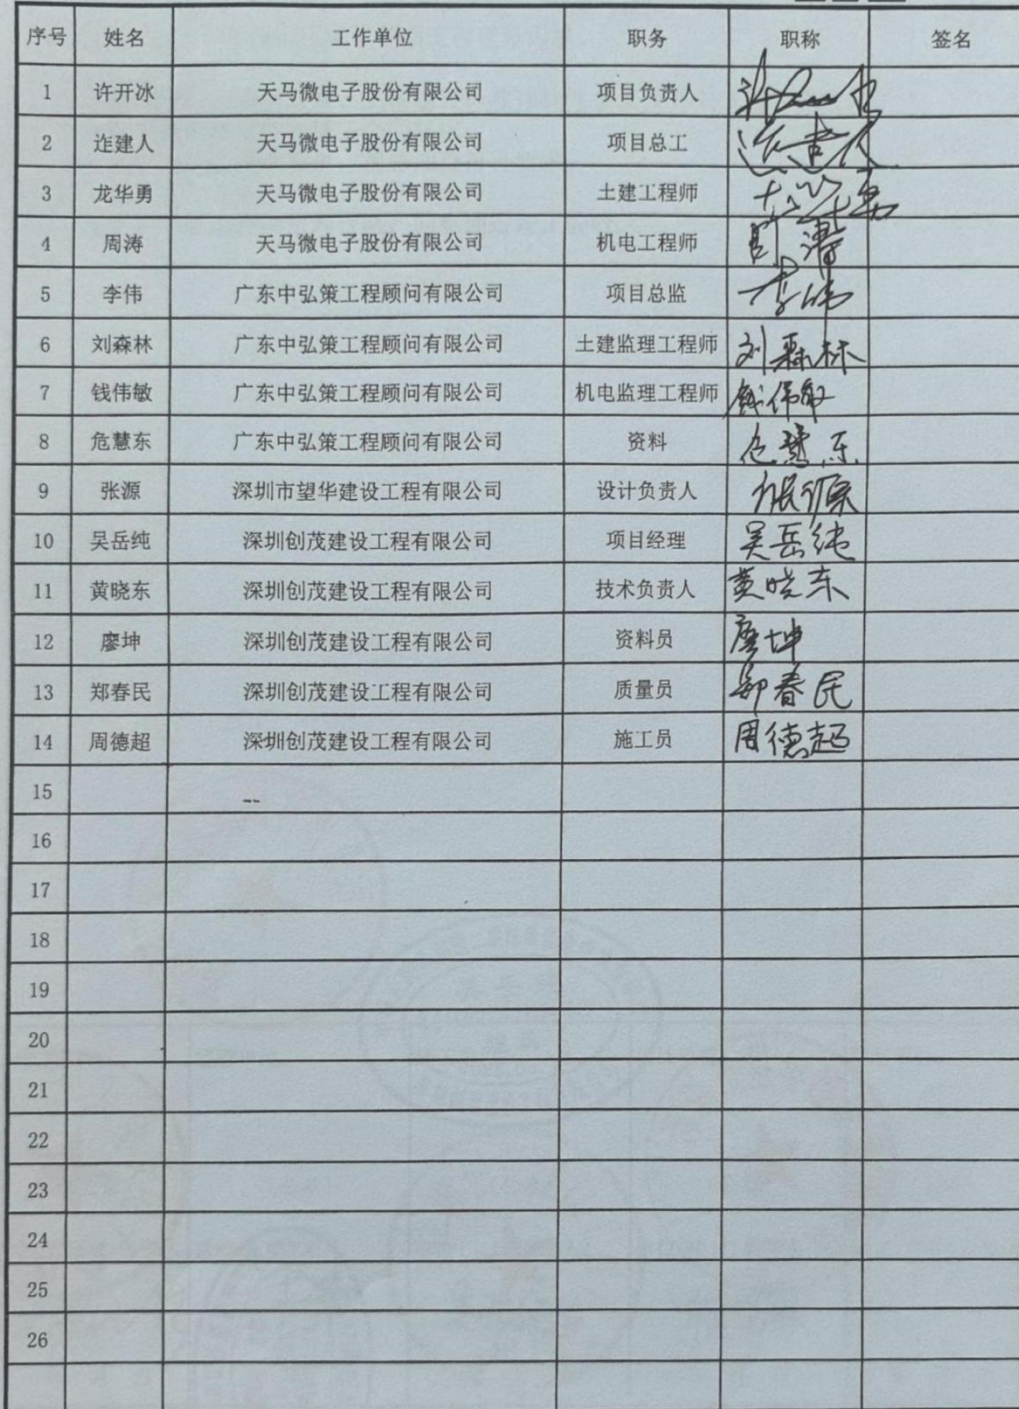 序号 姓名 工作单位 职务 职称 签名
1 许开冰 天马微电子股份有限公司 项目负责人
2 迮建人 天马微电子股份有限公司 项目总工 迮建人
3 龙华勇 天马微电子股份有限公司 土建工程师
4 周涛 天马微电子股份有限公司 机电工程师
5 李伟 广东中弘策工程顾问有限公司 项目总监 李伟
6 刘森林 广东中弘策工程顾问有限公司 土建监理工程师 刘森林
7 钱伟敏 广东中弘策工程顾问有限公司 机电监理工程师 钱伟敏
8 危慧东 广东中弘策工程顾问有限公司 资料 危慧东
9 张源 深圳市望华建设工程有限公司 设计负责人 张源
10 吴岳纯 深圳创茂建设工程有限公司 项目经理 吴岳纯
11 黄晓东 深圳创茂建设工程有限公司 技术负责人 黄晓东
12 廖坤 深圳创茂建设工程有限公司 资料员 廖坤
13 郑春民 深圳创茂建设工程有限公司 质量员 郑春民
14 周德超 深圳创茂建设工程有限公司 施工员 周德超
15
16
17
18
19
20
21
22
23
24
25
26